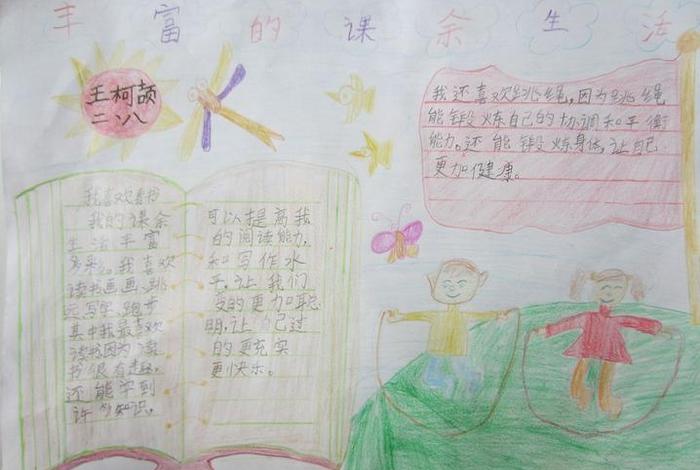 丰富的课余生活
王柯颉
二、八
我喜欢看书
我的课余
生活丰富
多彩。我喜欢
读书画画、跳
远写字、跑步
其中我最喜欢
读书因为读
书很有趣,
还能学到
许多知识,
可以提高我
的阅读能力,
和写作水
平,让我们
变的更加聪
明,让自己过
的更充实
更快乐。
我还喜欢跳绳,因为跳绳
能锻炼自己的协调和平衡
能力。还能锻炼身体,让自己
更加健康。